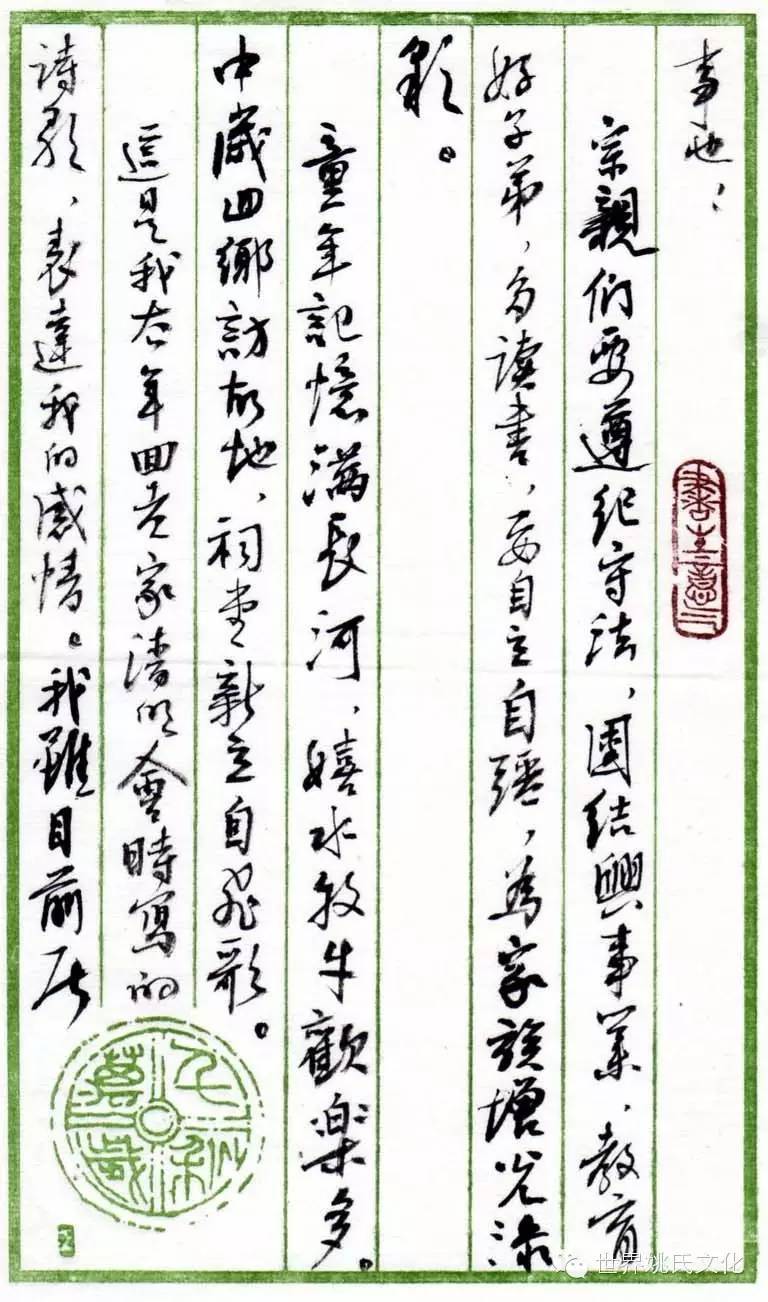 事也：
宗親们要遵纪守法，團结興事業，教育
好子弟，多读書，要自立自强，為家族增光添
彩。
童年記憶滿長河，嬉水牧牛歡樂多。
中歲回鄉訪故地，祠堂新立自飛歌。
這是我去年回老家清明會時寫的
詩歌，表達我的感情。我雖目前居
億千
萬歲
世界姚氏文化